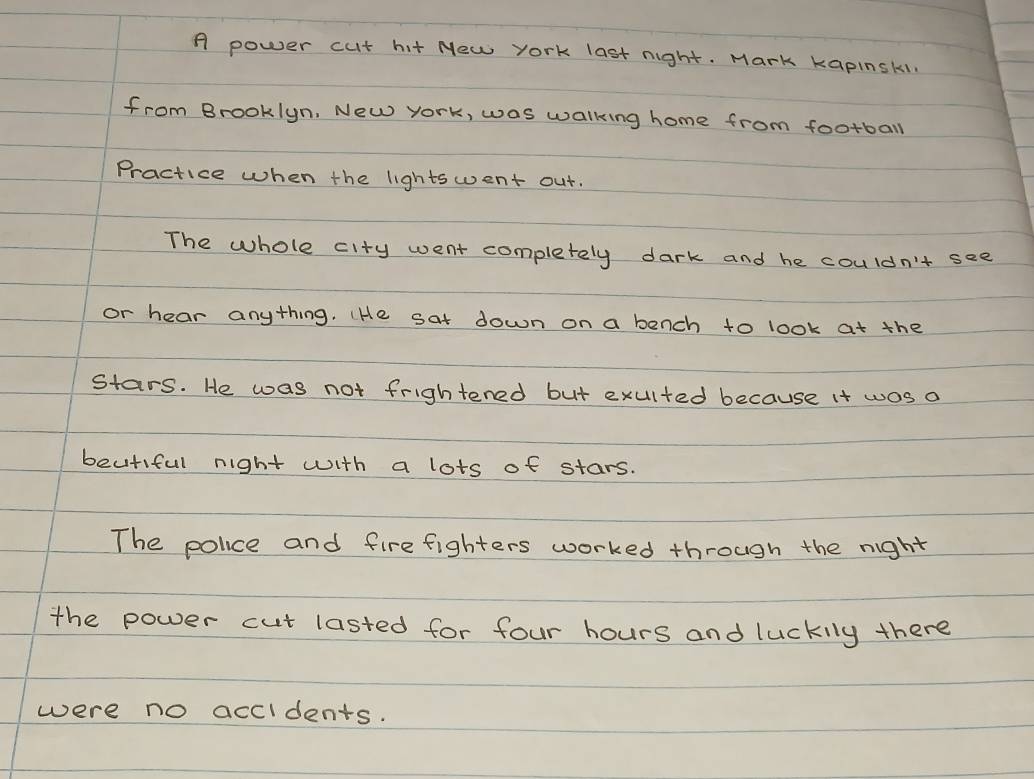 A power cut hit New York last night. Mark Kapinski.
from Brooklyn. New York, was walking home from football
Practice when the lights went out.
The whole city went completely dark and he couldn't see
or hear anything. He sat down on a bench to look at the
stars. He was not frightened but exuited because it was a
beutiful night with a lots of stars.
The police and firefighters worked through the night
the power cut lasted for four hours and luckily there
were no accidents.